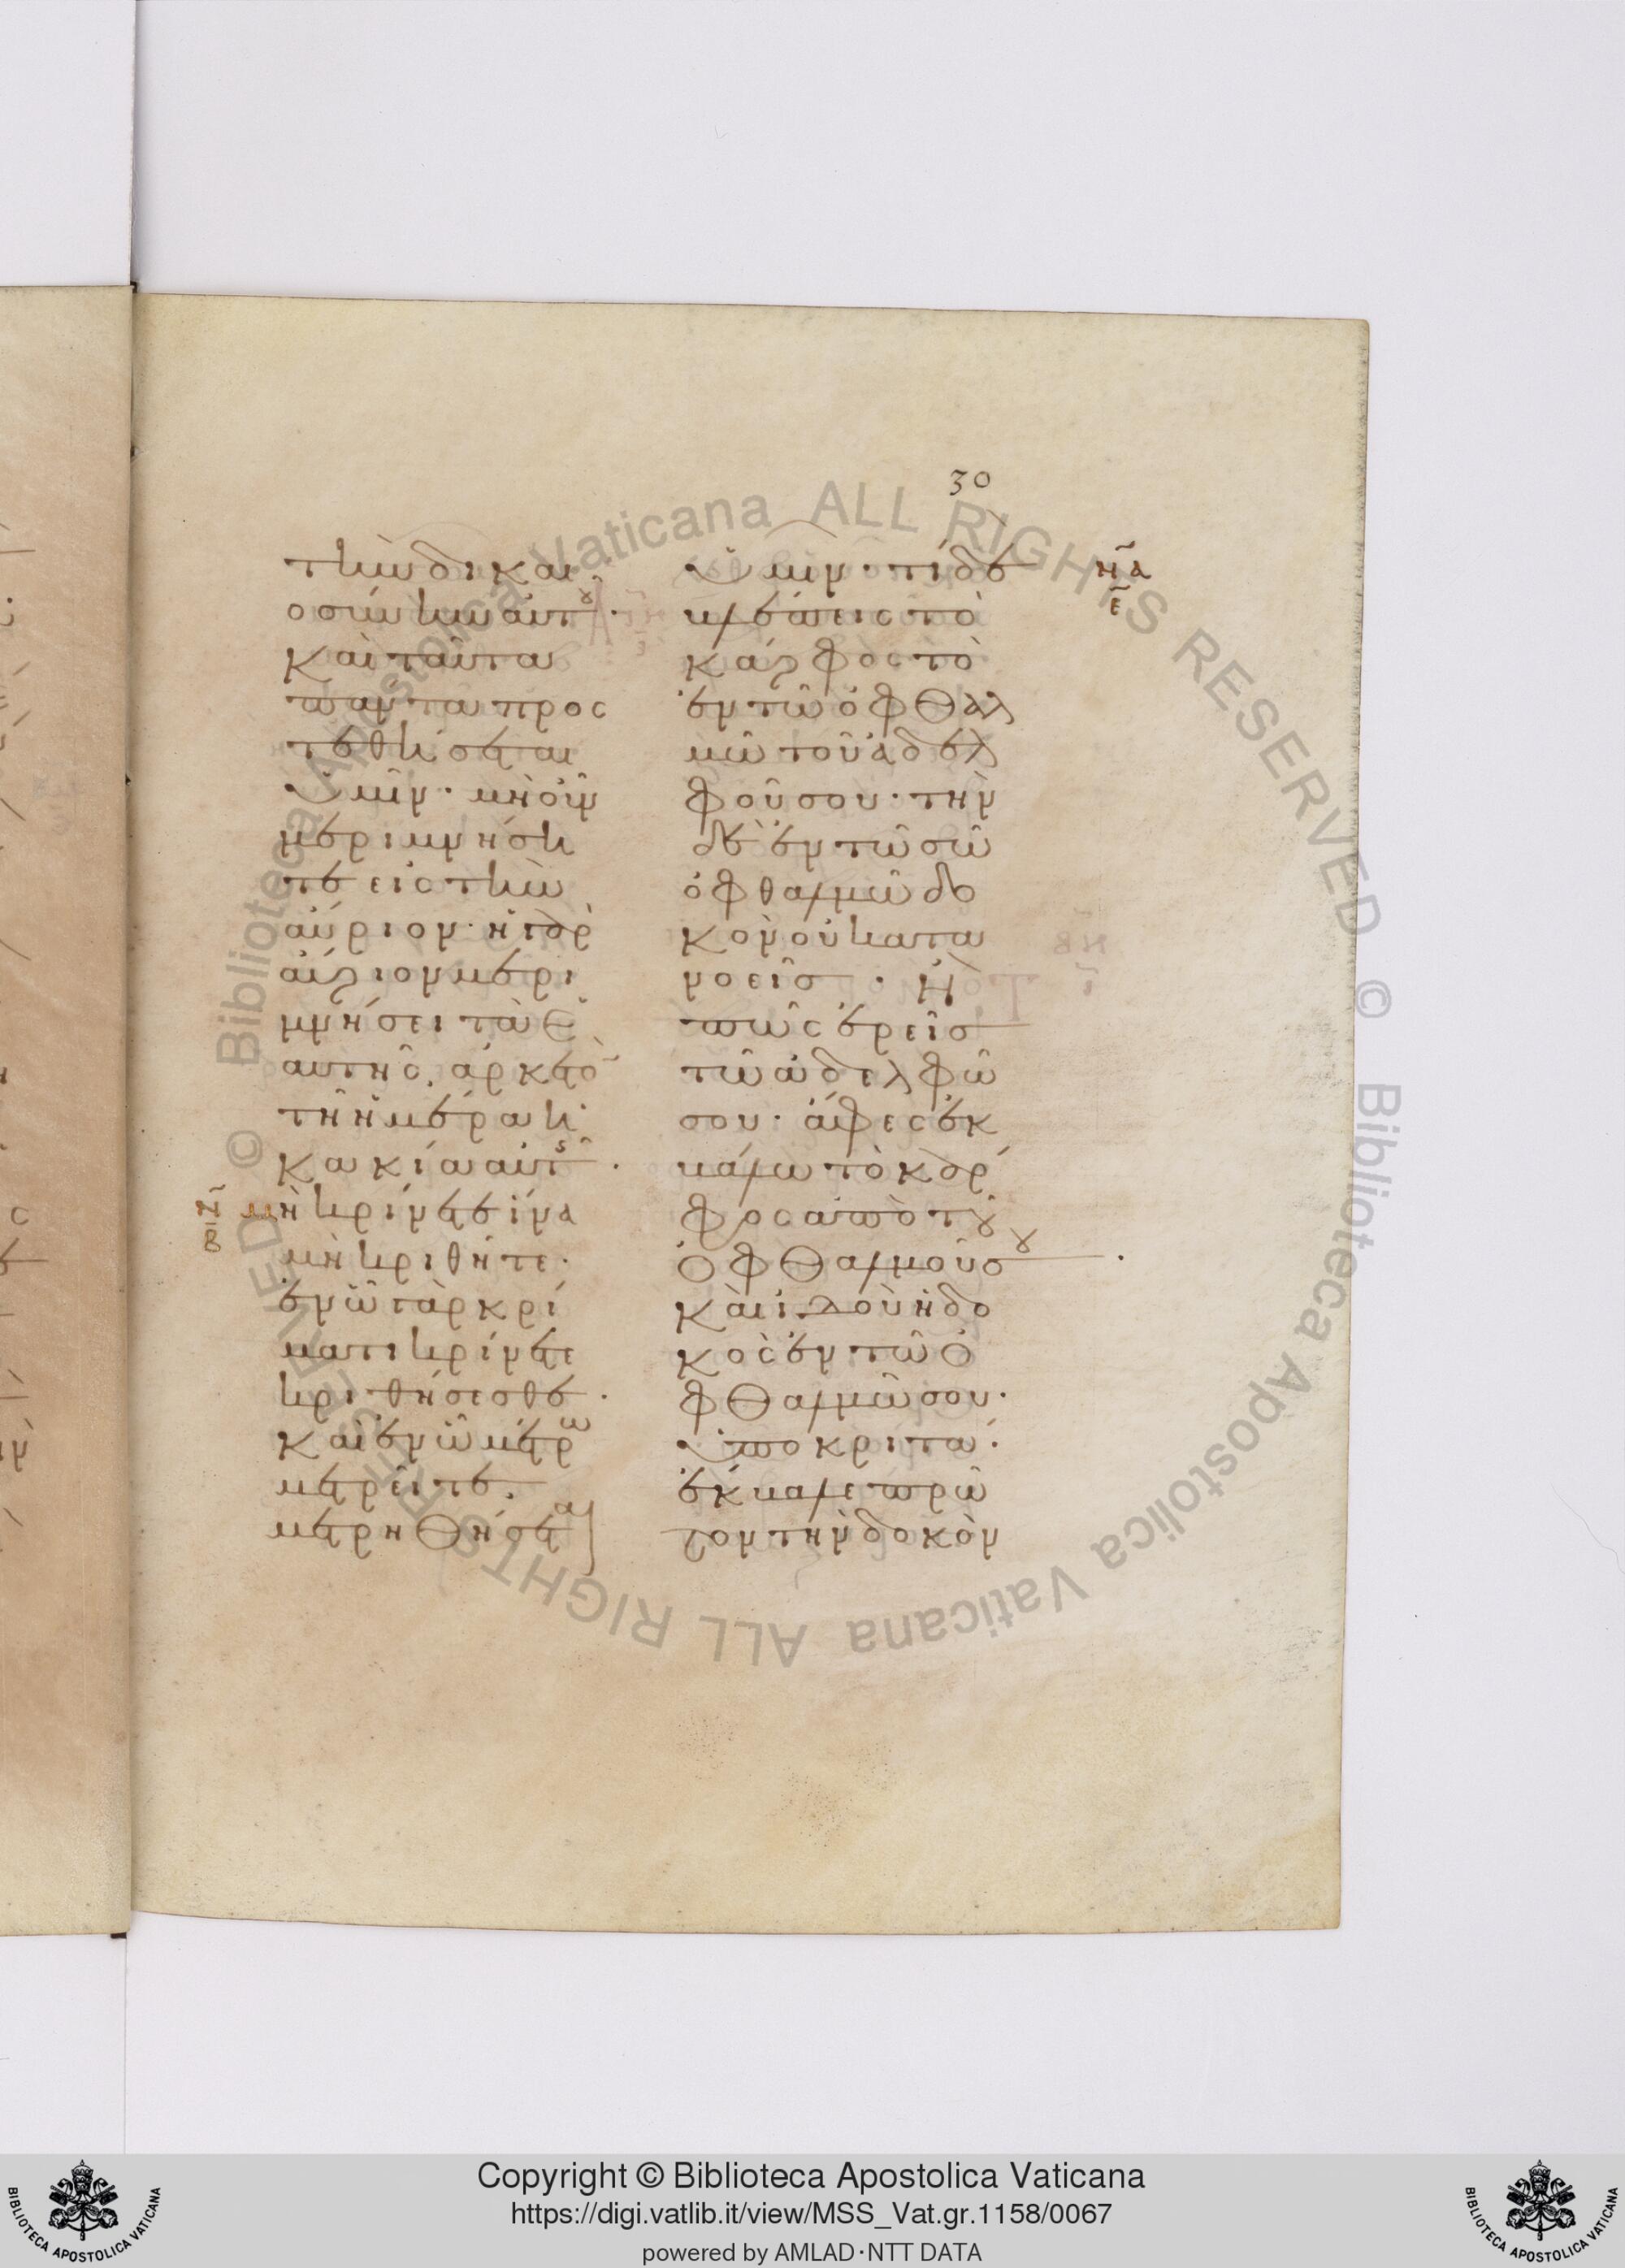 30
τὴν δικαι
οσύνην αὐτου·
καὶ ταῦτα
πάντα προς
τεθήσεται
ὑμῖν· μὴ οὖν
μεριμνήση
τε εἰς τὴν
αὔριον· ἡ γὰρ
αὔριον μερι
μνήσει τὰ ἑ
αυτῆς. ἀρκετὸν
τῆ ἡμέρα ἡ
κακία αὐτῆς·
μὴ κρίνετε ἵνα
μὴ κριθῆτε·
ἐν ὧ γὰρ κρί
ματι κρίνετε
κριθήσεσθε·
καὶ ἐν ὧ μέτρω
μετρεῖτε.
μετρηθήσεται
ὑμῖν· τί δὲ
βλέπεις τὸ
κάρφος τὸ
ἐν τῶ ὀφθαλ
μῶ τοῦ ἀδελ
φοῦ σου· τὴν
δὲ ἐν τῶ σῶ
ὀφθαλμῶ δο
κὸν οὐ κατα
νοεῖς· Ἢ
πῶς ἐρεῖς
τῶ ἀδελφῶ
σου· ἄφες ἐκ
βάλω τὸ κάρ
φος ἀπὸ του
ὀφθαλμοῦ σου·
καὶ ἰδοὺ ἡ δο
κὸς ἐν τῶ ὀ
φθαλμῶ σου·
ὑποκριτά·
ἔκβαλε πρῶ
τον τὴν δοκὸν
να
ε
Copyright © Biblioteca Apostolica Vaticana
https://digi.vatlib.it/view/MSS_Vat.gr.1158/0067
powered by AMLAD·NTT DATA
BIBLIOTECA APOSTOLICA VATICANA
BIBLIOTECA APOSTOLICA VATICANA
© Biblioteca Apostolica Vaticana ALL RIGHTS RESERVED © Biblioteca Apostolica Vaticana ALL RIGHTS RESERVED